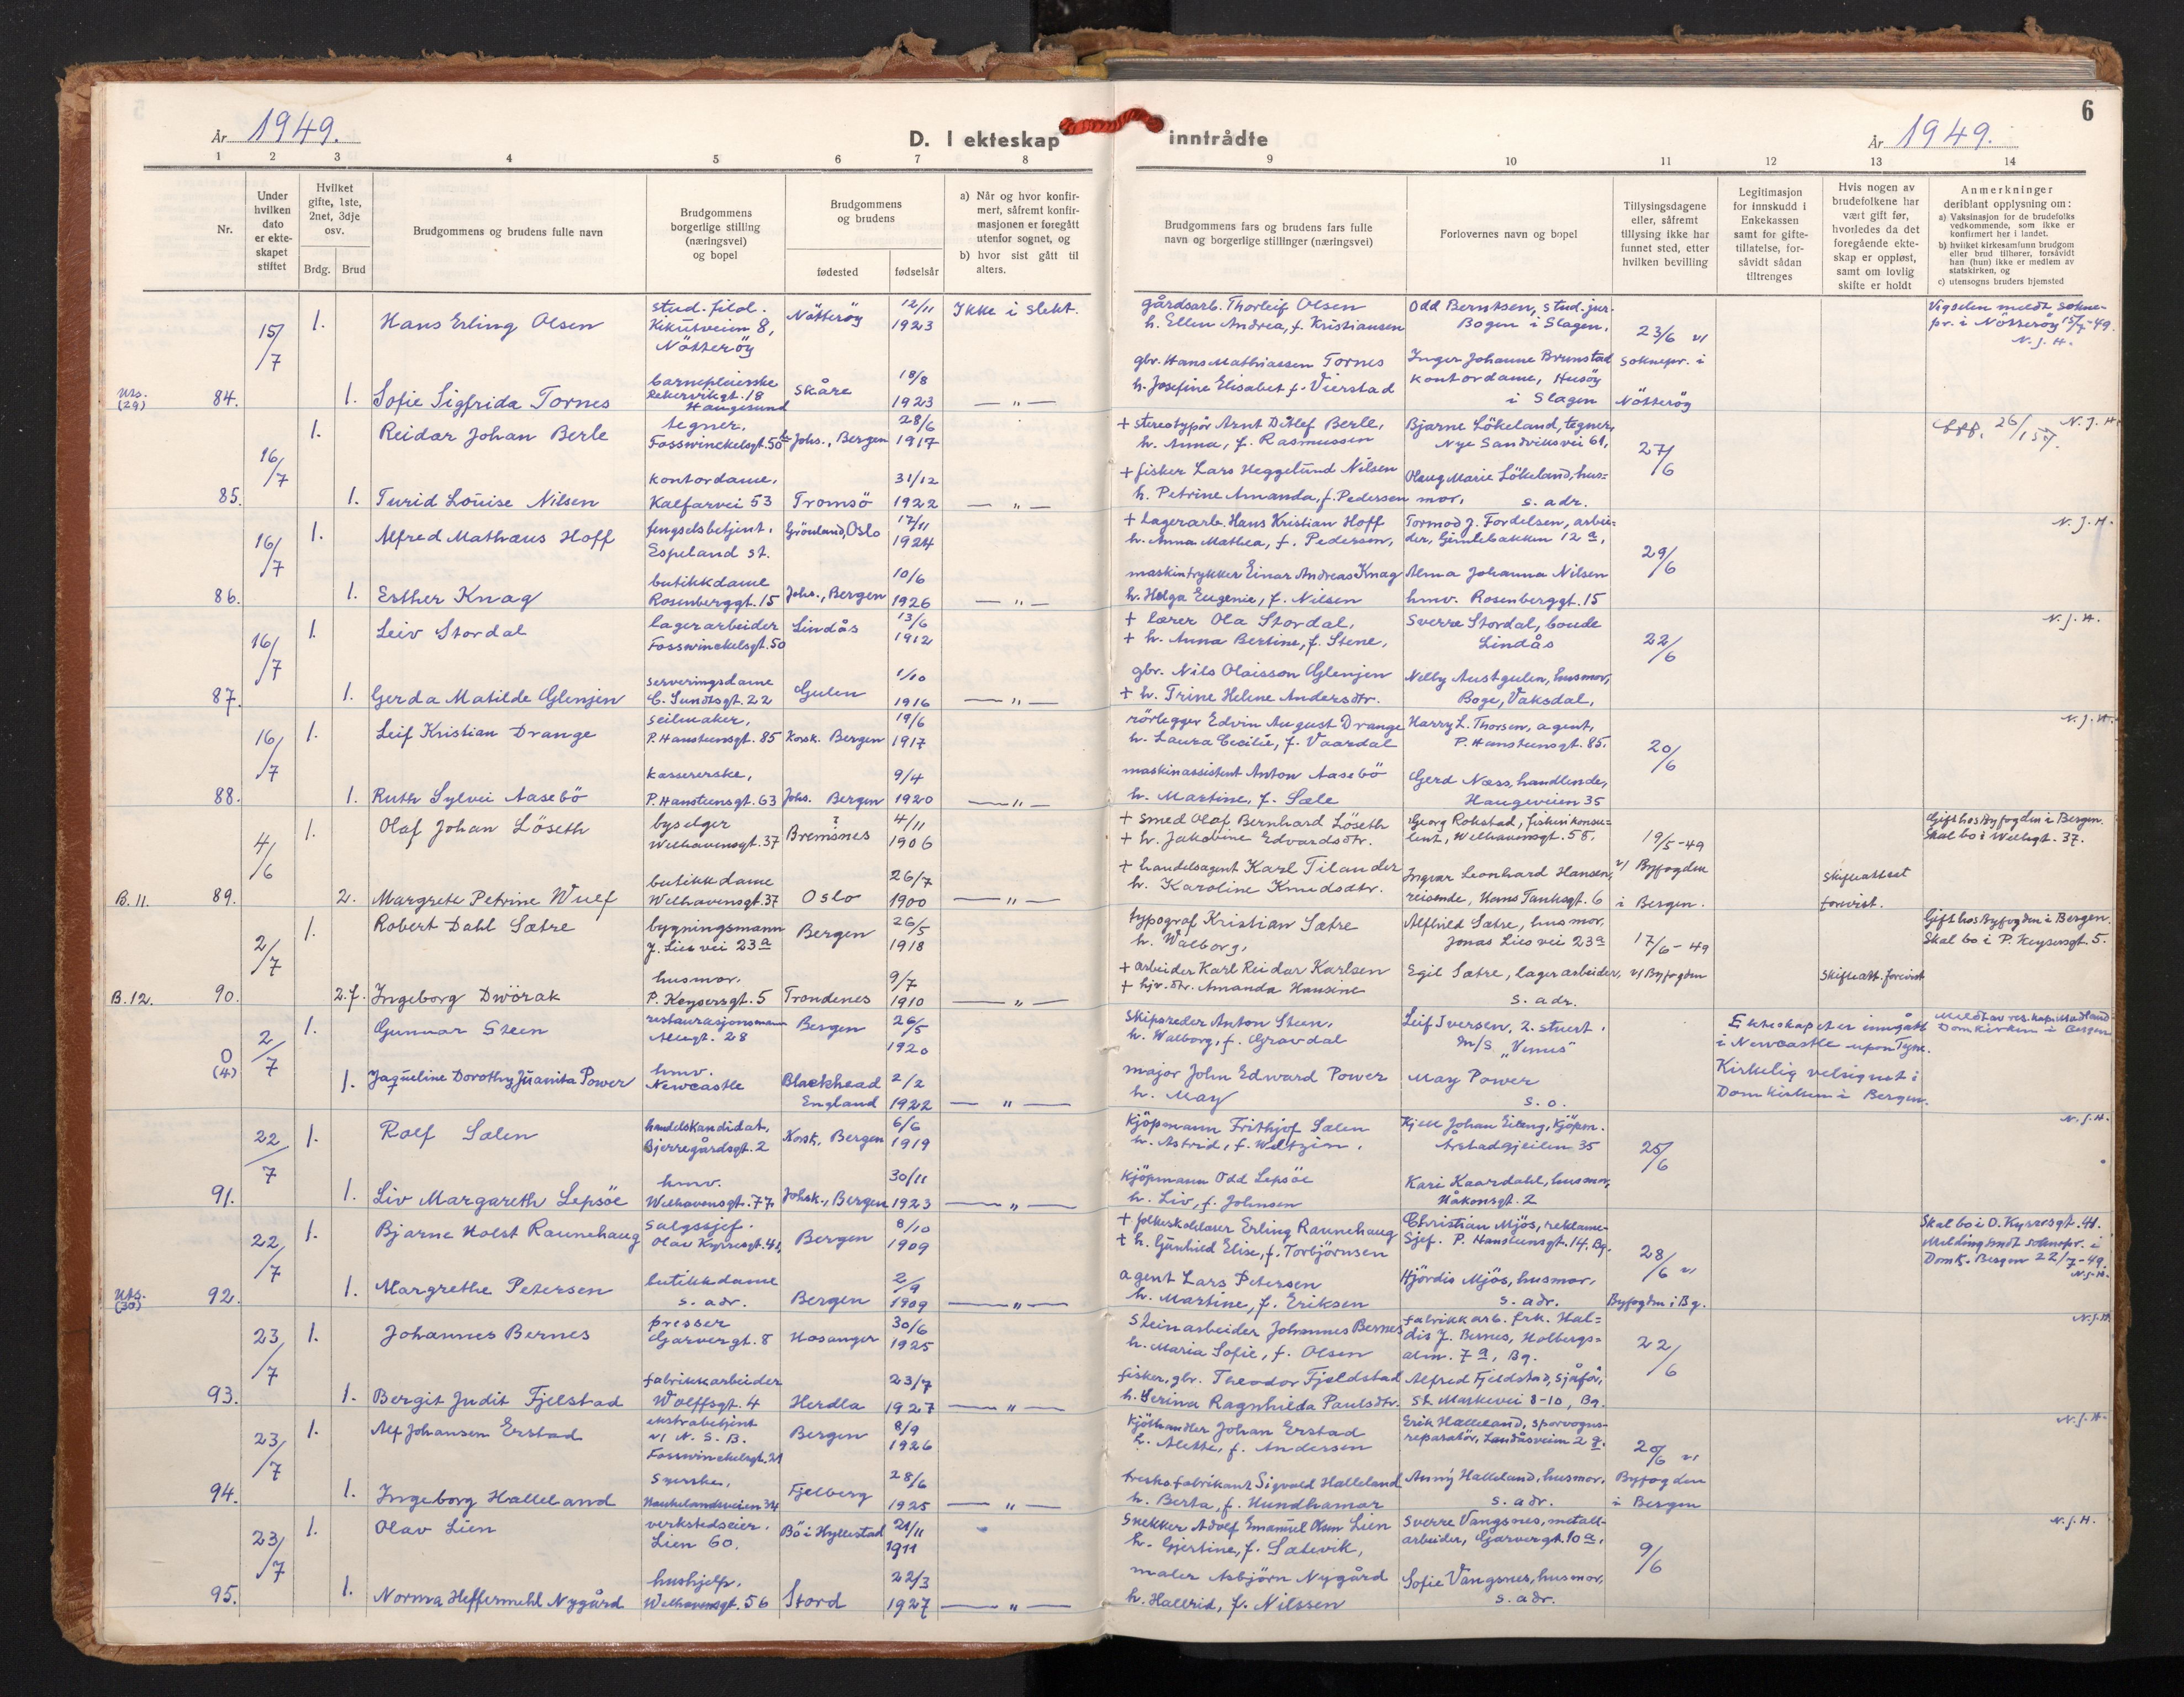 År 1949.
D. I ekteskap inntrådte
År 1949.
6
1 2 3 4 5 6 7 8 9 10 11 12 13 14
Nr.
Under hvilken dato er ekteskapet stiftet
Hvilket gifte, 1ste, 2net, 3dje osv.
Brdg. Brud
Brudgommens og brudens fulle navn
Brudgommens borgerlige stilling (næringsvei) og bopel
Brudgommens og brudens
fødested fødselsår
a) Når og hvor konfirmert, såfremt konfirmasjonen er foregått utenfor sognet, og
b) hvor sist gått til alters.
Brudgommens fars og brudens fars fulle navn og borgerlige stillinger (næringsvei)
Forlovernes navn og bopel
Tillysingsdagene eller, såfremt tillysing ikke har funnet sted, etter hvilken bevilling
Legitimasjon for innskudd i Enkekassen samt for giftetillatelse, forsåvidt sådan tiltrenges
Hvis nogen av brudefolkene har vært gift før, hvorledes da det foregående ekteskap er oppløst, samt om lovlig skifte er holdt
Anmerkninger deriblant opplysning om:
a) Vaksinasjon for de brudefolks vedkommende, som ikke er konfirmert her i landet.
b) hvilket kirkesamfunn brudgom eller brud tilhører, forsåvidt han (hun) ikke er medlem av statskirken, og
c) utensogns bruders hjemsted
15/7 1. Hans Erling Olsen stud. filol. Kikutveien 8, Nötteröy Nötteröy 12/11 1923 Ikke i slekt. gårdsarb. Thorleif Olsen h. Ellen Andrea, f. Kristiansen Odd Berntsen, stud. jur. Bogen i Slagen, 23/6 v/ Vigselen meldt sokne-pr. i Nötteröy 15/7-49. N. J. H.
Uts. (29) 84. 1. Sofie Sigfrida Tornes barnepleierske Rekervikgt. 18 Haugesund Skåre 18/8 1923 — " — gbr. Hans Mathiassen Tornes h. Josefine Elisabet f. Vierstad Inger Johanne Brunstad kontordame, Husöy i Slagen soknepr. i Nötteröy
16/7 1. Reidar Johan Berle tegner, Fosswinckelsgt. 50 Johs., Bergen 28/6 1917 + stereotypör Arnt Ditlef Berle, h. Anna, f. Rasmussen Bjarne Lökeland, tegner, Nye Sandviksvei 61, 27/6 26/1 57. N. J. H.
85. 1. Turid Louise Nilsen kontordame, Kalfarvei 53 Tromsö 31/12 1922 — " — + fisker Lars Heggelund Nilsen h. Petrine Amanda, f. Pedersen Olaug Marie Lökeland, hus=mor, s. adr.
16/7 1. Alfred Mathæus Hoff fengselsbetjent, Espeland st. Grönland, Oslo 17/11 1924 + Lagerarb. Hans Kristian Hoff h. Anna Mathea, f. Pedersen, Tormod J. Fordelsen, arbei=der, Gimlebakken 12 a, 29/6 N. J. H.
86. 1. Esther Knag butikkdame Rosenberggt. 15 Johs., Bergen 10/6 1926 — " — maskintrykker Einar Andreas Knag h. Helga Eugenie, f. Nilsen Alma Johanna Nilsen hmv. Rosenberggt. 15
16/7 1. Leiv Stordal lagerarbeider Fosswinckelsgt. 50 Lindås 13/6 1912 + lærer Ola Stordal, + h. Anna Bertine, f. Stene, Sverre Stordal, bonde Lindås 22/6 N. J. H.
87. 1. Gerda Matilde Glenjen serveringsdame C. Sundtsgt. 22 Gulen 1/10 1916 — " — gbr. Nils Olaisson Glenjen + h. Trine Helene Andersdtr. Nelly Austgulen, husmor, Boge, Vaksdal,
16/7 1. Leif Kristian Drange seilmaker, P. Hansteensgt. 85 Korsk. Bergen 19/6 1917 rörlegger Edvin August Drange h. Laura Cecilie, f. Vaardal Harry L. Thorsen, agent, P. Hansteensgt. 85. 20/6 N. J. H.
88. 1. Ruth Sylvei Aasebö kassererske, P. Hansteensgt. 63 Johs. Bergen 9/4 1920 — " — maskinassistent Anton Aasebö h. Martine, f. Sæle Gerd Næss, handlende, Haugeveien 35
4/6 1. Olaf Johan Löseth byselger Welhavensgt. 37 Bremsnes ? 4/11 1906 + smed Olaf Bernhard Löseth + h. Jakobine Edvardsdtr. Georg Rokstad, fiskerikonsu=lent, Welhavensgt. 58. 19/5-49 Gift hos Byfogden i Bergen. Skal bo i Welhgt. 37.
B. 11. 89. 2. Margrete Petrine Wulf butikkdame Welhavensgt. 37 Oslo 26/7 1900 — " — + handelsagent Karl Tilander h. Karoline Knudsdtr. Ingvar Leonhard Hansen, reisende, Hans Tanksgt. 6 v/ Byfogden i Bergen. Skifteattest forevist.
2/7 1. Robert Dahl Sætre bygningsmann J. Lies vei 23 a Bergen 26/5 1918 typograf Kristian Sætre h. Walborg, Alfhild Sætre, husmor, Jonas Lies vei 23 a 17/6-49 Gift hos Byfogden i Bergen. Skal bo i P. Keysersgt. 5.
B. 12. 90. 2. f. Ingeborg Dwörak husmor. P. Keysersgt. 5 Trondenes 9/7 1910 — " — + arbeider Karl Reidar Karlsen + hjv. dtr. Amanda Hansine Egil Sætre, lagerarbeider, s. adr. v/ Byfogden Skifteatt. forevist
2/7 1. Gunnar Steen restaurasjonsmann Allégt. 28 Bergen 26/5 1920 Skipsreder Anton Steen, h. Walborg, f. Gravdal Leif Iversen, 2. stuert, M/S "Venus" Ekteskapet er inngått i Newcastle upon Tyne. Meldt av res. kap. Madland Domkirken i Bergen
0 (4) 1. Jaqueline Dorothy Juanita Power hmv. Newcastle Blackhead England 2/2 1922 — " — major John Edward Power h. May May Power s. o. Kirkelig velsignet i Domkirken i Bergen.
22/7 1. Rolf Salen handelskandidat, Bjerregårdsgt. 2 Korsk. Bergen 6/6 1919 Kjöpmann Frithjof Salen h. Astrid, f. Weltzin, Kjell Johan Eileng, Kjöpm. Årstadgjeilen 35 25/6 N. J. H.
91. 1. Liv Margareth Lepsöe hmv. Welhavensgt. 77, Johsk., Bergen 30/11 1923 — " — Kjöpmann Odd Lepsöe h. Liv, f. Johnsen Kari Kaardahl, husmor, Håkonsgt. 2
22/7 1. Bjarne Holst Raunehaug Salgssjef. Olav Kyrresgt. 41, Bergen 8/10 1909 + folkeskolelærer Erling Raunehaug + h. Gunhild Elise, f. Torbjörnsen Christian Mjös, reklame-Sjef. P. Hansteensgt. 14, Bg. 28/6 v/ Skal bo i O. Kyrresgt. 41. Melding sendt soknepr. i Domk. Bergen 22/7-49. N. J. H.
Uts. (30) 92. 1. Margrethe Petersen butikkdame s. adr. Bergen 2/9 1909 — " — agent Lars Petersen h. Martine, f. Eriksen Hjördis Mjös, husmor, s. adr. Byfogden i Bg.
23/7 1. Johannes Bernes presser Garvergt. 8 Hosanger 30/6 1925 Steinarbeider Johannes Bernes h. Maria Sofie, f. Olsen fabrikkarb. frk. Hal=dis J. Bernes, Holbergs=alm. 7 a, Bg. 22/6 N. J. H.
93. 1. Bergit Judit Fjelstad fabrikkarbeider Wolffsgt. 4 Herdla 23/7 1927 — " — fisker, gbr. Theodor Fjeldstad h. Serina Ragnhilda Paulsdtr. Alfred Fjeldstad, sjåför, St. Markevei 8-10, Bg.
23/7 1. Alf Johansen Erstad ekstrabetjent v/ N. S. B. Fosswinckelsgt. 21 Bergen 8/9 1926 Kjötthandler Johan Erstad h. Alette, f. Andersen Erik Halleland, sporvogns-reparatör, Landåsveien 2 g. 20/6 v/ N. J. H.
94. 1. Ingeborg Halleland Syerske, Haukelandsveien 34 Fjelberg 28/6 1925 — " — treskofabrikant Sigvald Halleland h. Berta, f. Hundhamar Anny Halleland, husmor, s. adr. Byfogden i Bergen
23/7 1. Olav Lien verkstedseier. Lien 60. Bö i Hyllestad 21/11 1911 Snekker Adolf Emanuel Olsen Lien h. Gjertine, f. Satevik, Sverre Vangsnes, metall-arbeider, Garvergt. 10 a, 9/6 N. J. H.
95. 1. Norma Heffermehl Nygård hushjelp. Welhavensgt. 56 Stord 22/3 1927 — " — maler Asbjörn Nygård h. Hallrid, f. Nilssen Sofie Vangsnes, husmor, s. adr.